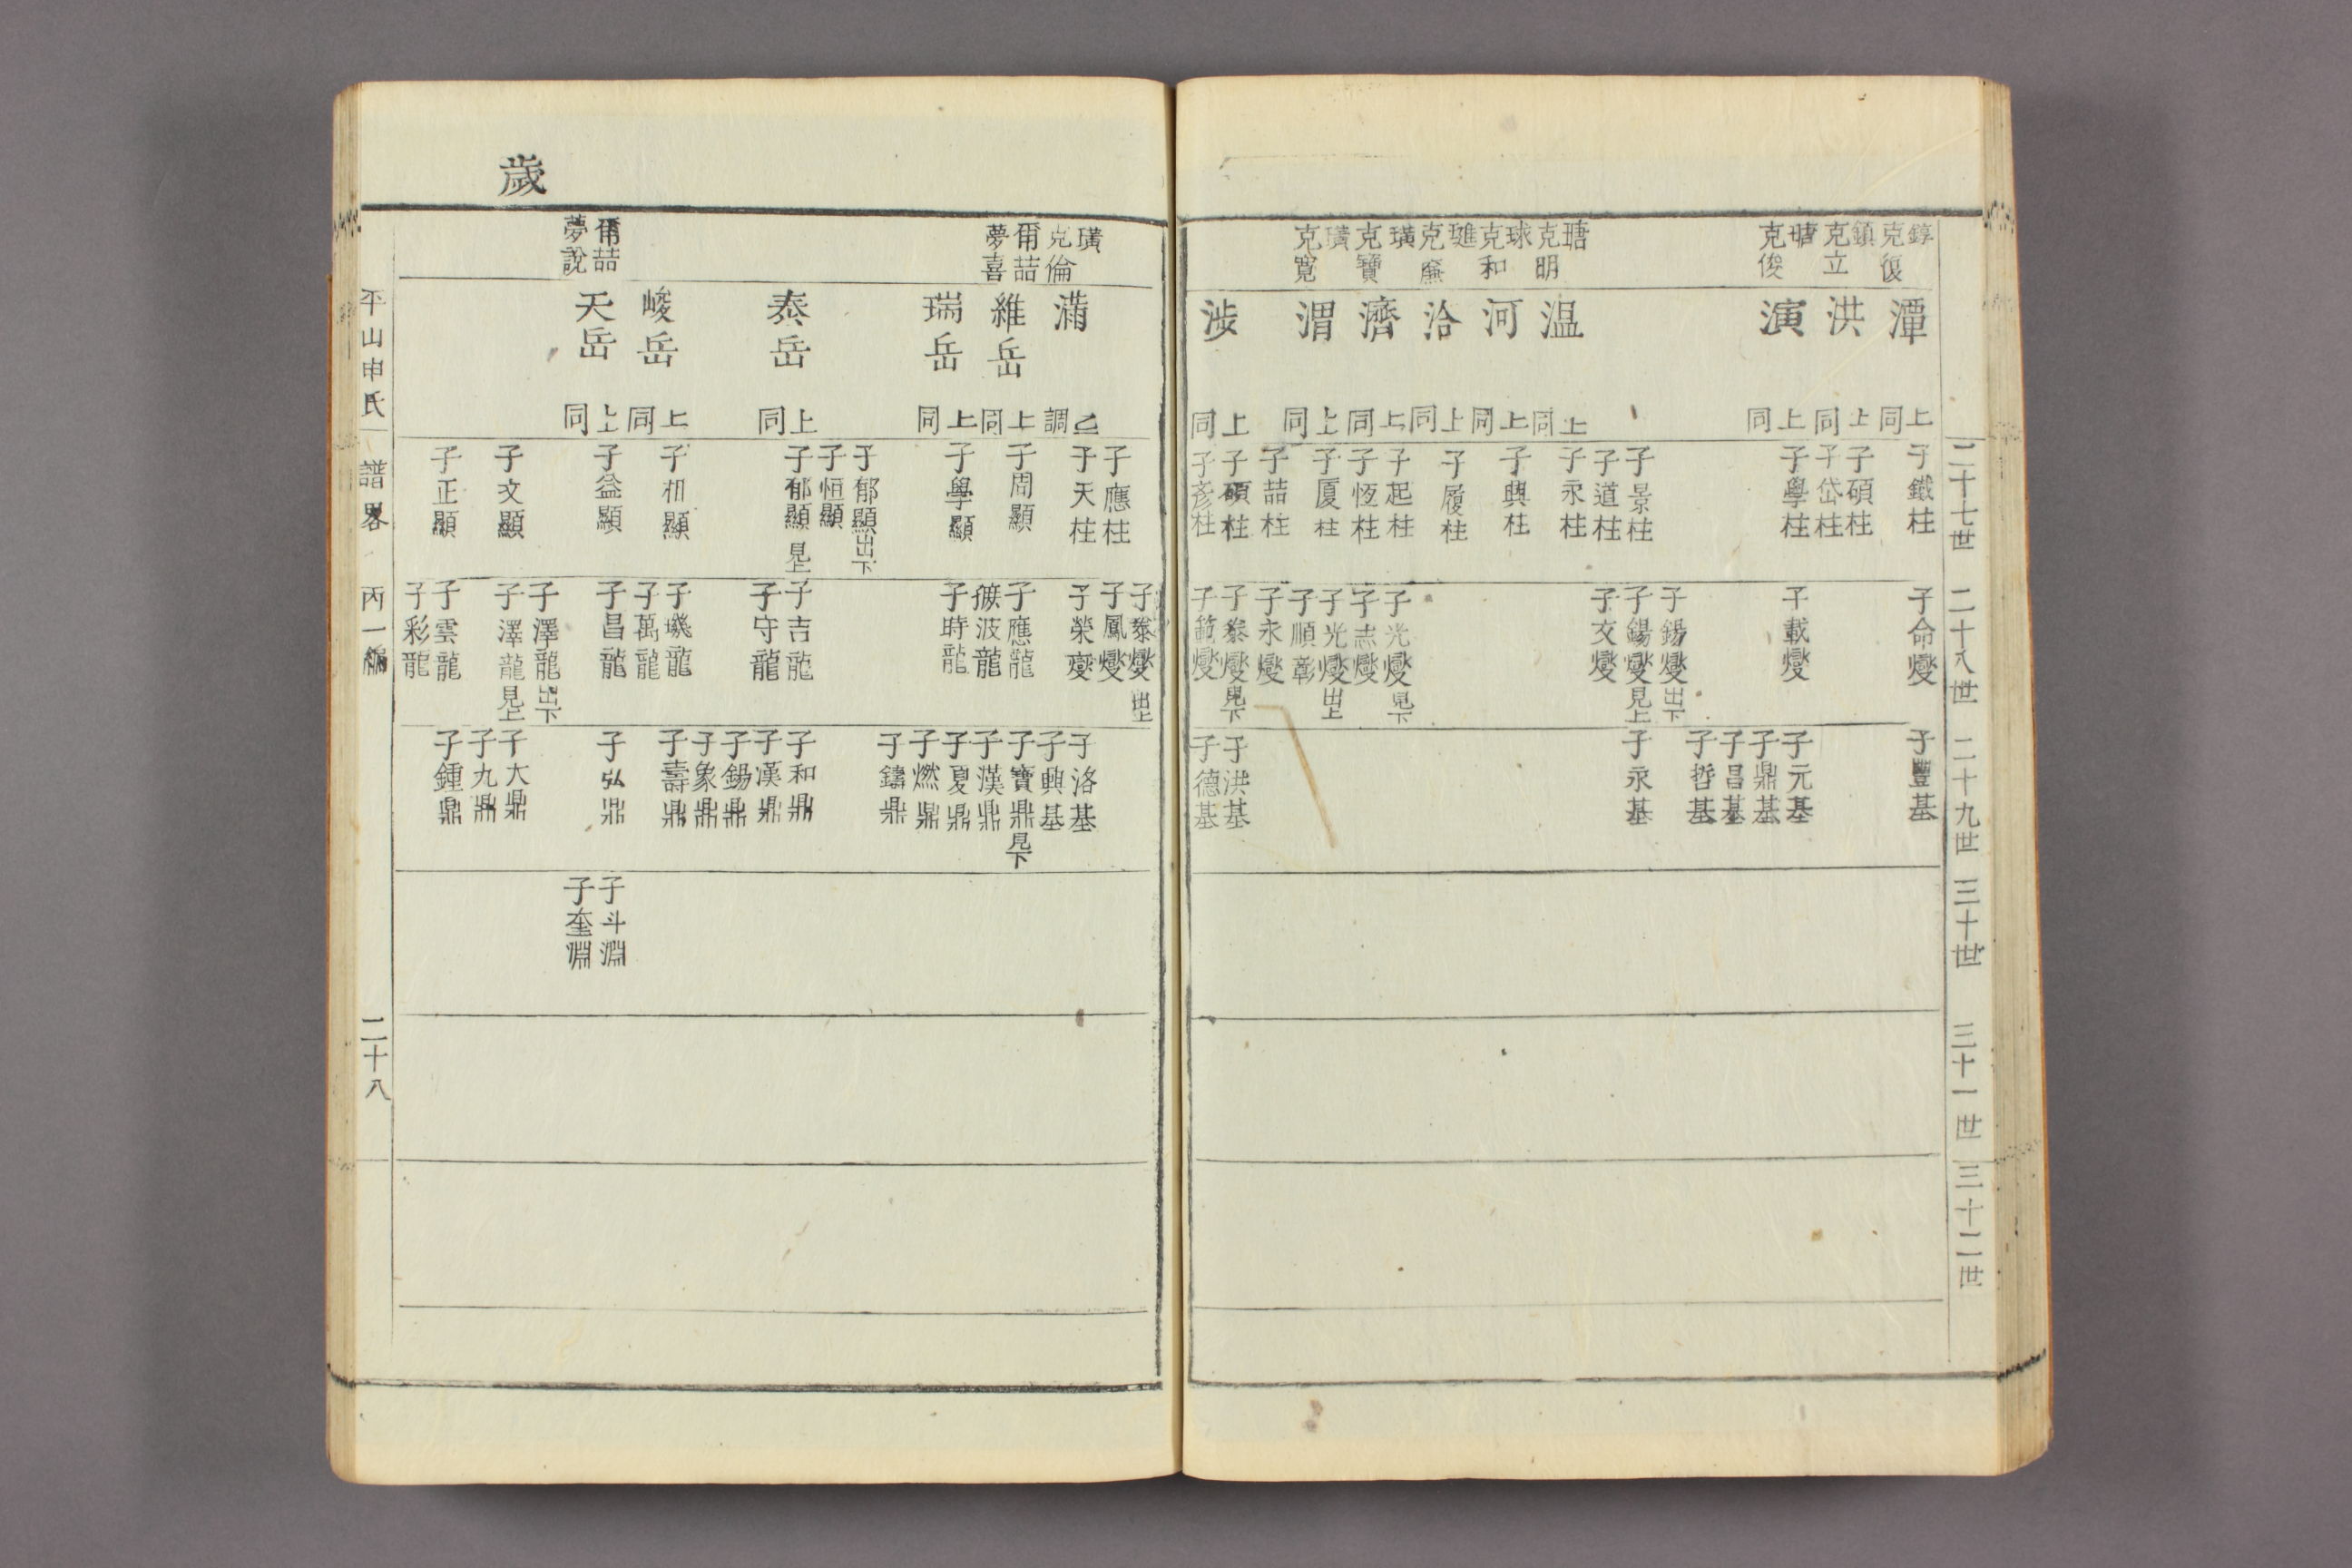 二十七世
二十八世
二十九世
三十世
三十一世
三十二世
錞
克復
鎮
克立
瑭
克俊
瑭
克明
球
克和
璡
克廉
璜
克寶
璜
克寬
潭
上同
洪
上同
演
上同
温
上同
河
上同
洽
上同
濟
上同
渭
上同
渉
上同
子鐵柱
子碩柱
子岱柱
子學柱
子景柱
子道柱
子永柱
子興柱
子履柱
子起柱
子恆柱
子厦柱
子喆柱
子碩柱
子彥柱
子命燮
子載燮
子錫燮出下
子錫燮見上
子文燮
子光燮見下
子志燮
子光燮出上
子順彰
子永燮
子泰燮見下
子燮
子豐基
子元基
子鼎基
子昌基
子哲基
子永基
子洪基
子德基
歲
璜
克倫
爾喆
夢喜
爾喆
夢說
滿
乙調
維岳
上同
瑞岳
上同
泰岳
上同
峻岳
上同
天岳
上同
子應柱
子天柱
子周顯
子學顯
子郁顯出下
子恒顯
子郁顯見上
子相顯
子益顯
子文顯
子正顯
子泰燮出上
子鳳燮
子榮燮
子應龍
後波龍
子時龍
子吉龍
子守龍
子璣龍
子萬龍
子昌龍
子澤龍出下
子澤龍見上
子雲龍
子彩龍
子洛基
子興基
子寶鼎見下
子漢鼎
子夏鼎
子燃鼎
子鑄鼎
子和鼎
子漢鼎
子錫鼎
子象鼎
子壽鼎
子弘鼎
子大鼎
子九鼎
子鍾鼎
子斗淵
子奎淵
平山申氏 譜畧 丙一編 二十八